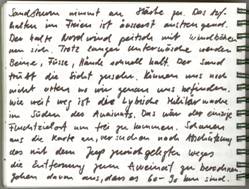 Sandsturm nimmt an Stärke zu. Das auf
halten im Freien ist äusserst anstrengend.
Der kalte Nordwind peitscht mit Windböen
um sich. Trotz langen Unterwäsche werden
Beine, Füsse, Hände schnell kalt. Der Sand
trübt die Sicht gesehen. Können uns noch
nicht orten wo wir genau uns befinden.
wie weit weg ist das Lybische Militär
im Süden des Awainats. Das wär der einzige
Fluchtzielort um frei zu kommen. Schauen
aus die Karte an. Versuchen nach Abschätzung
des mit dem Jeep zurückgelegten Weges
die Entfernung zum Awainat zu berechnen
gehen davon aus, dass es 60-70 km sind.